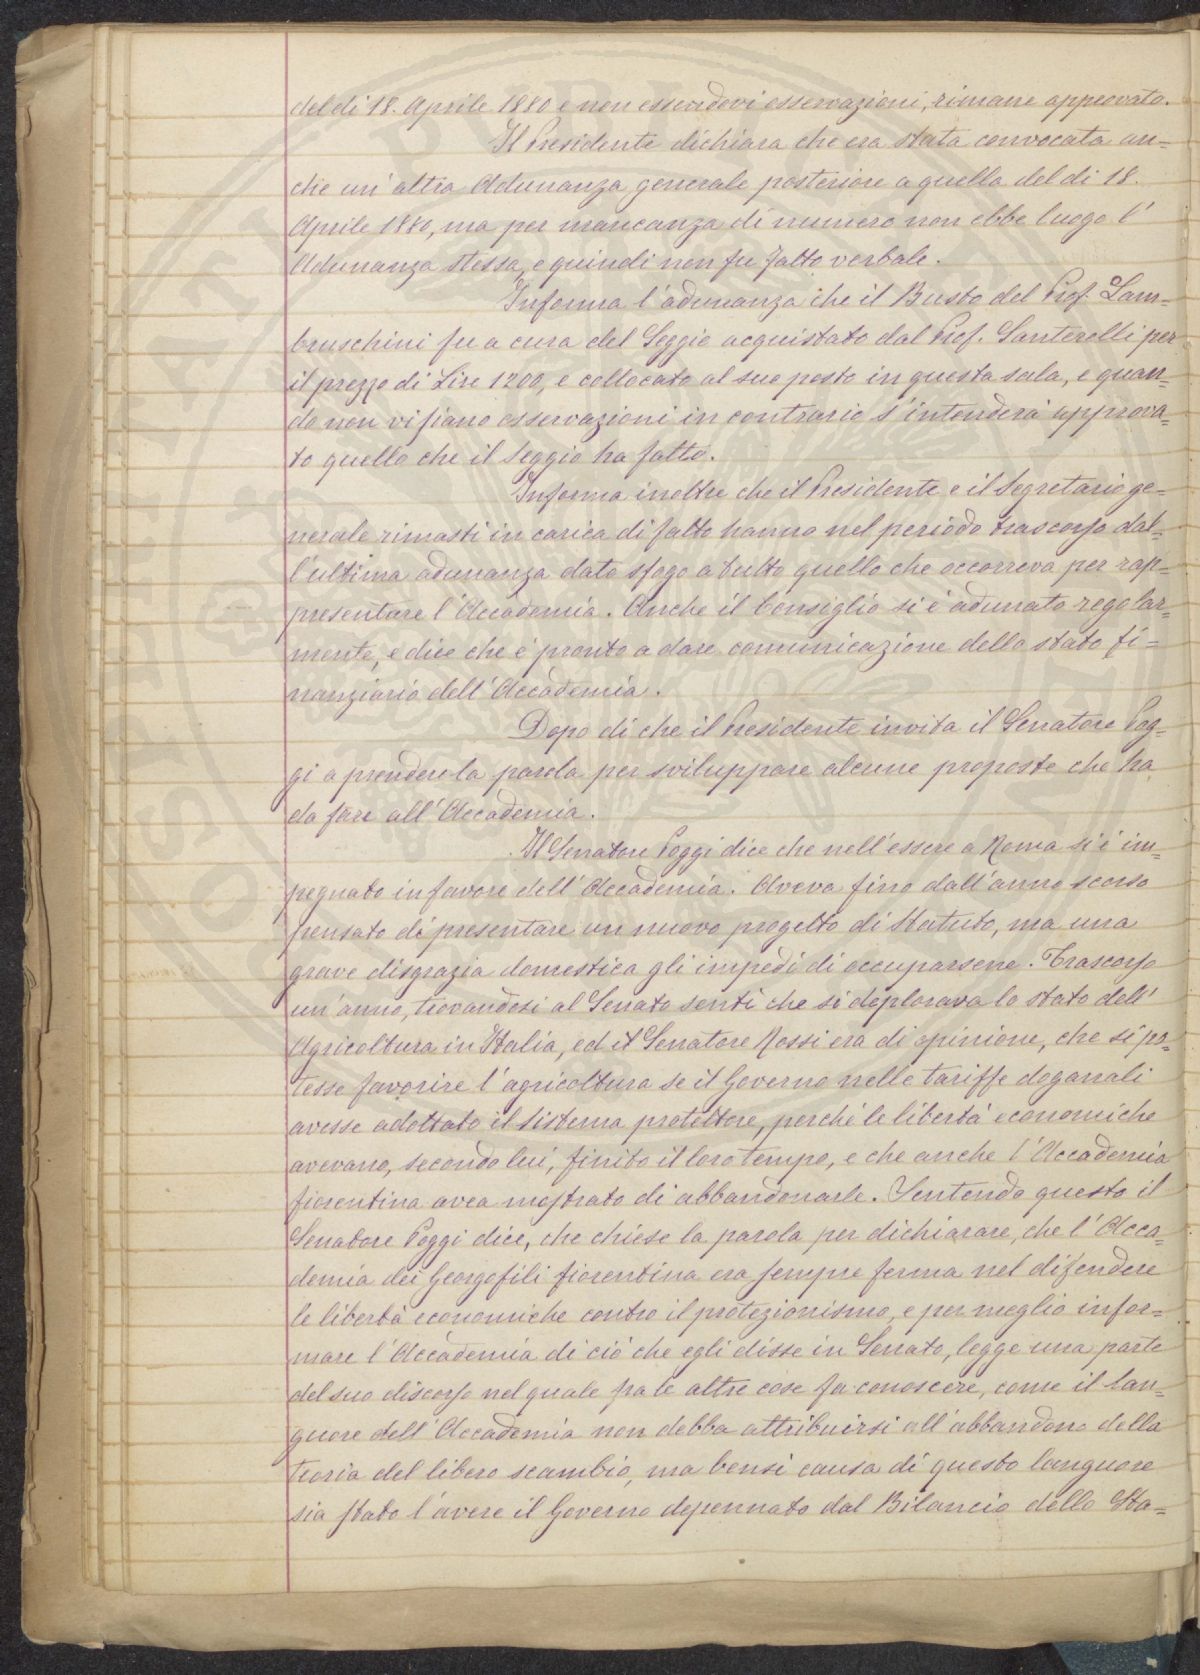 del dì 18. Aprile 1880 e non essendovi osservazioni, rimane approvato.
Il Presidente dichiara che era stata convocata an=
che un'altra Adunanza generale posteriore a quella del dì 18.
Aprile 1880, ma per mancanza di numero non ebbe luogo l'
Adunanza stessa, e quindi non fu fatto verbale.
Informa l'adunanza che il Busto del Prof. Lam=
bruschini fu a cura del Seggio acquistato dal Prof. Santerelli per
il prezzo di Lire 1200, e collocato al suo posto in questa sala, e quan=
do non vi siano osservazioni in contrario s'intenderà approva=
to quello che il Seggio ha fatto.
Informa inoltre che il Presidente e il Segretario ge=
nerale rimasti in carica di fatto hanno nel periodo trascorso dal=
l'ultima adunanza dato sfogo a tutto quello che occorreva per rap=
presentare l'Accademia. Anche il Consiglio si è adunato regolar=
mente, e dice che è pronto a dare comunicazione dello stato fi=
nanziario dell'Accademia.
Dopo di che il Presidente invita il Senatore Pog=
gi a prendere la parola per sviluppare alcune proposte che ha
da fare all'Accademia.
Il Senatore Poggi dice che nell'essere a Roma si è im=
pegnato in favore dell'Accademia. Aveva fino dall'anno scorso
pensato di presentare un nuovo progetto di Statuto, ma una
grave disgrazia domestica gli impedì di occuparsene. Trascorso
un'anno, trovandosi al Senato sentì che si deplorava lo stato dell'
Agricoltura in Italia, ed il Senatore Rossi era di opinione, che si po=
tesse favorire l'agricoltura se il Governo nelle tariffe doganali
avesse adottato il sistema protettore, perché le libertà economiche
avevano, secondo lui, finito il loro tempo, e che anche l'Accademia
fiorentina avea mostrato di abbandonarle. Sentendo questo il
Senatore Poggi dice, che chiese la parola per dichiarare, che l'Acca=
demia dei Georgofili fiorentina era sempre ferma nel difendere
le libertà economiche contro il protezionismo, e per meglio infor=
mare l'Accademia di ciò che egli disse in Senato, legge una parte
del suo discorso nel quale fra le altre cose fa conoscere, come il lan=
guore dell'Accademia non debba attribuirsi all'abbandono della
teoria del libero scambio, ma bensì causa di questo languore
sia stato l'avere il Governo depennato dal Bilancio dello Sta=